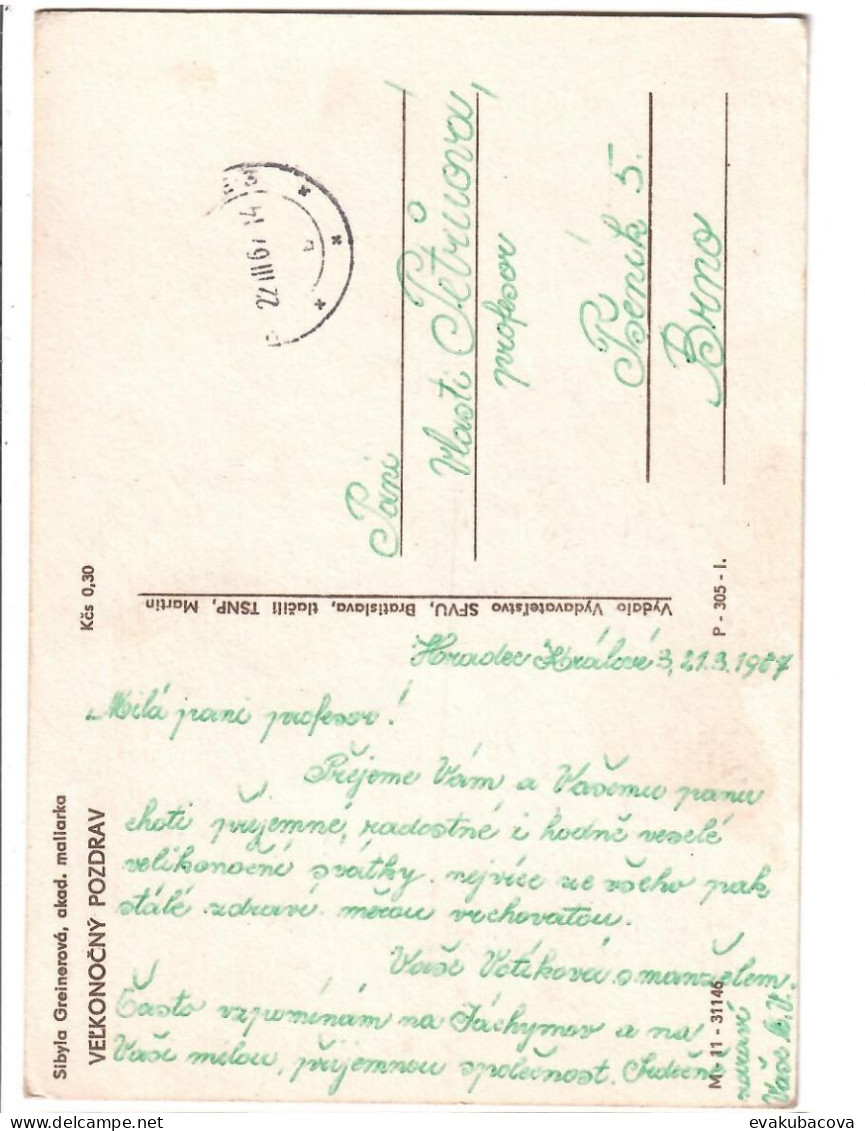 Sibyla Greinerová, akad. maliarka
VEĽKONOČNÝ POZDRAV
Kčs 0,30
22 III 67 14
Paní
Vlasti Petrůová,
profesor
Pšeník 5.
Brno
Vydalo Vydavateľstvo SFVU, Bratislava, tlačili TSNP, Martin
P - 305 - I.
M - 11 - 31146
Hradec Králové 3, 21.3.1967
Milá paní profesor!
Přejeme Vám a Vašemu panu
choti příjemné, radostné i hodně veselé
velikonoční svátky. nejvíce ze všeho pak
stálé zdraví měrou vrchovatou.
Vaše Votíková s manželem
Často vzpomínám na Jáchymov a na
Vaši milou, příjemnou společnost. Srdečně
zdraví
Vaše M.V.
evakubacova